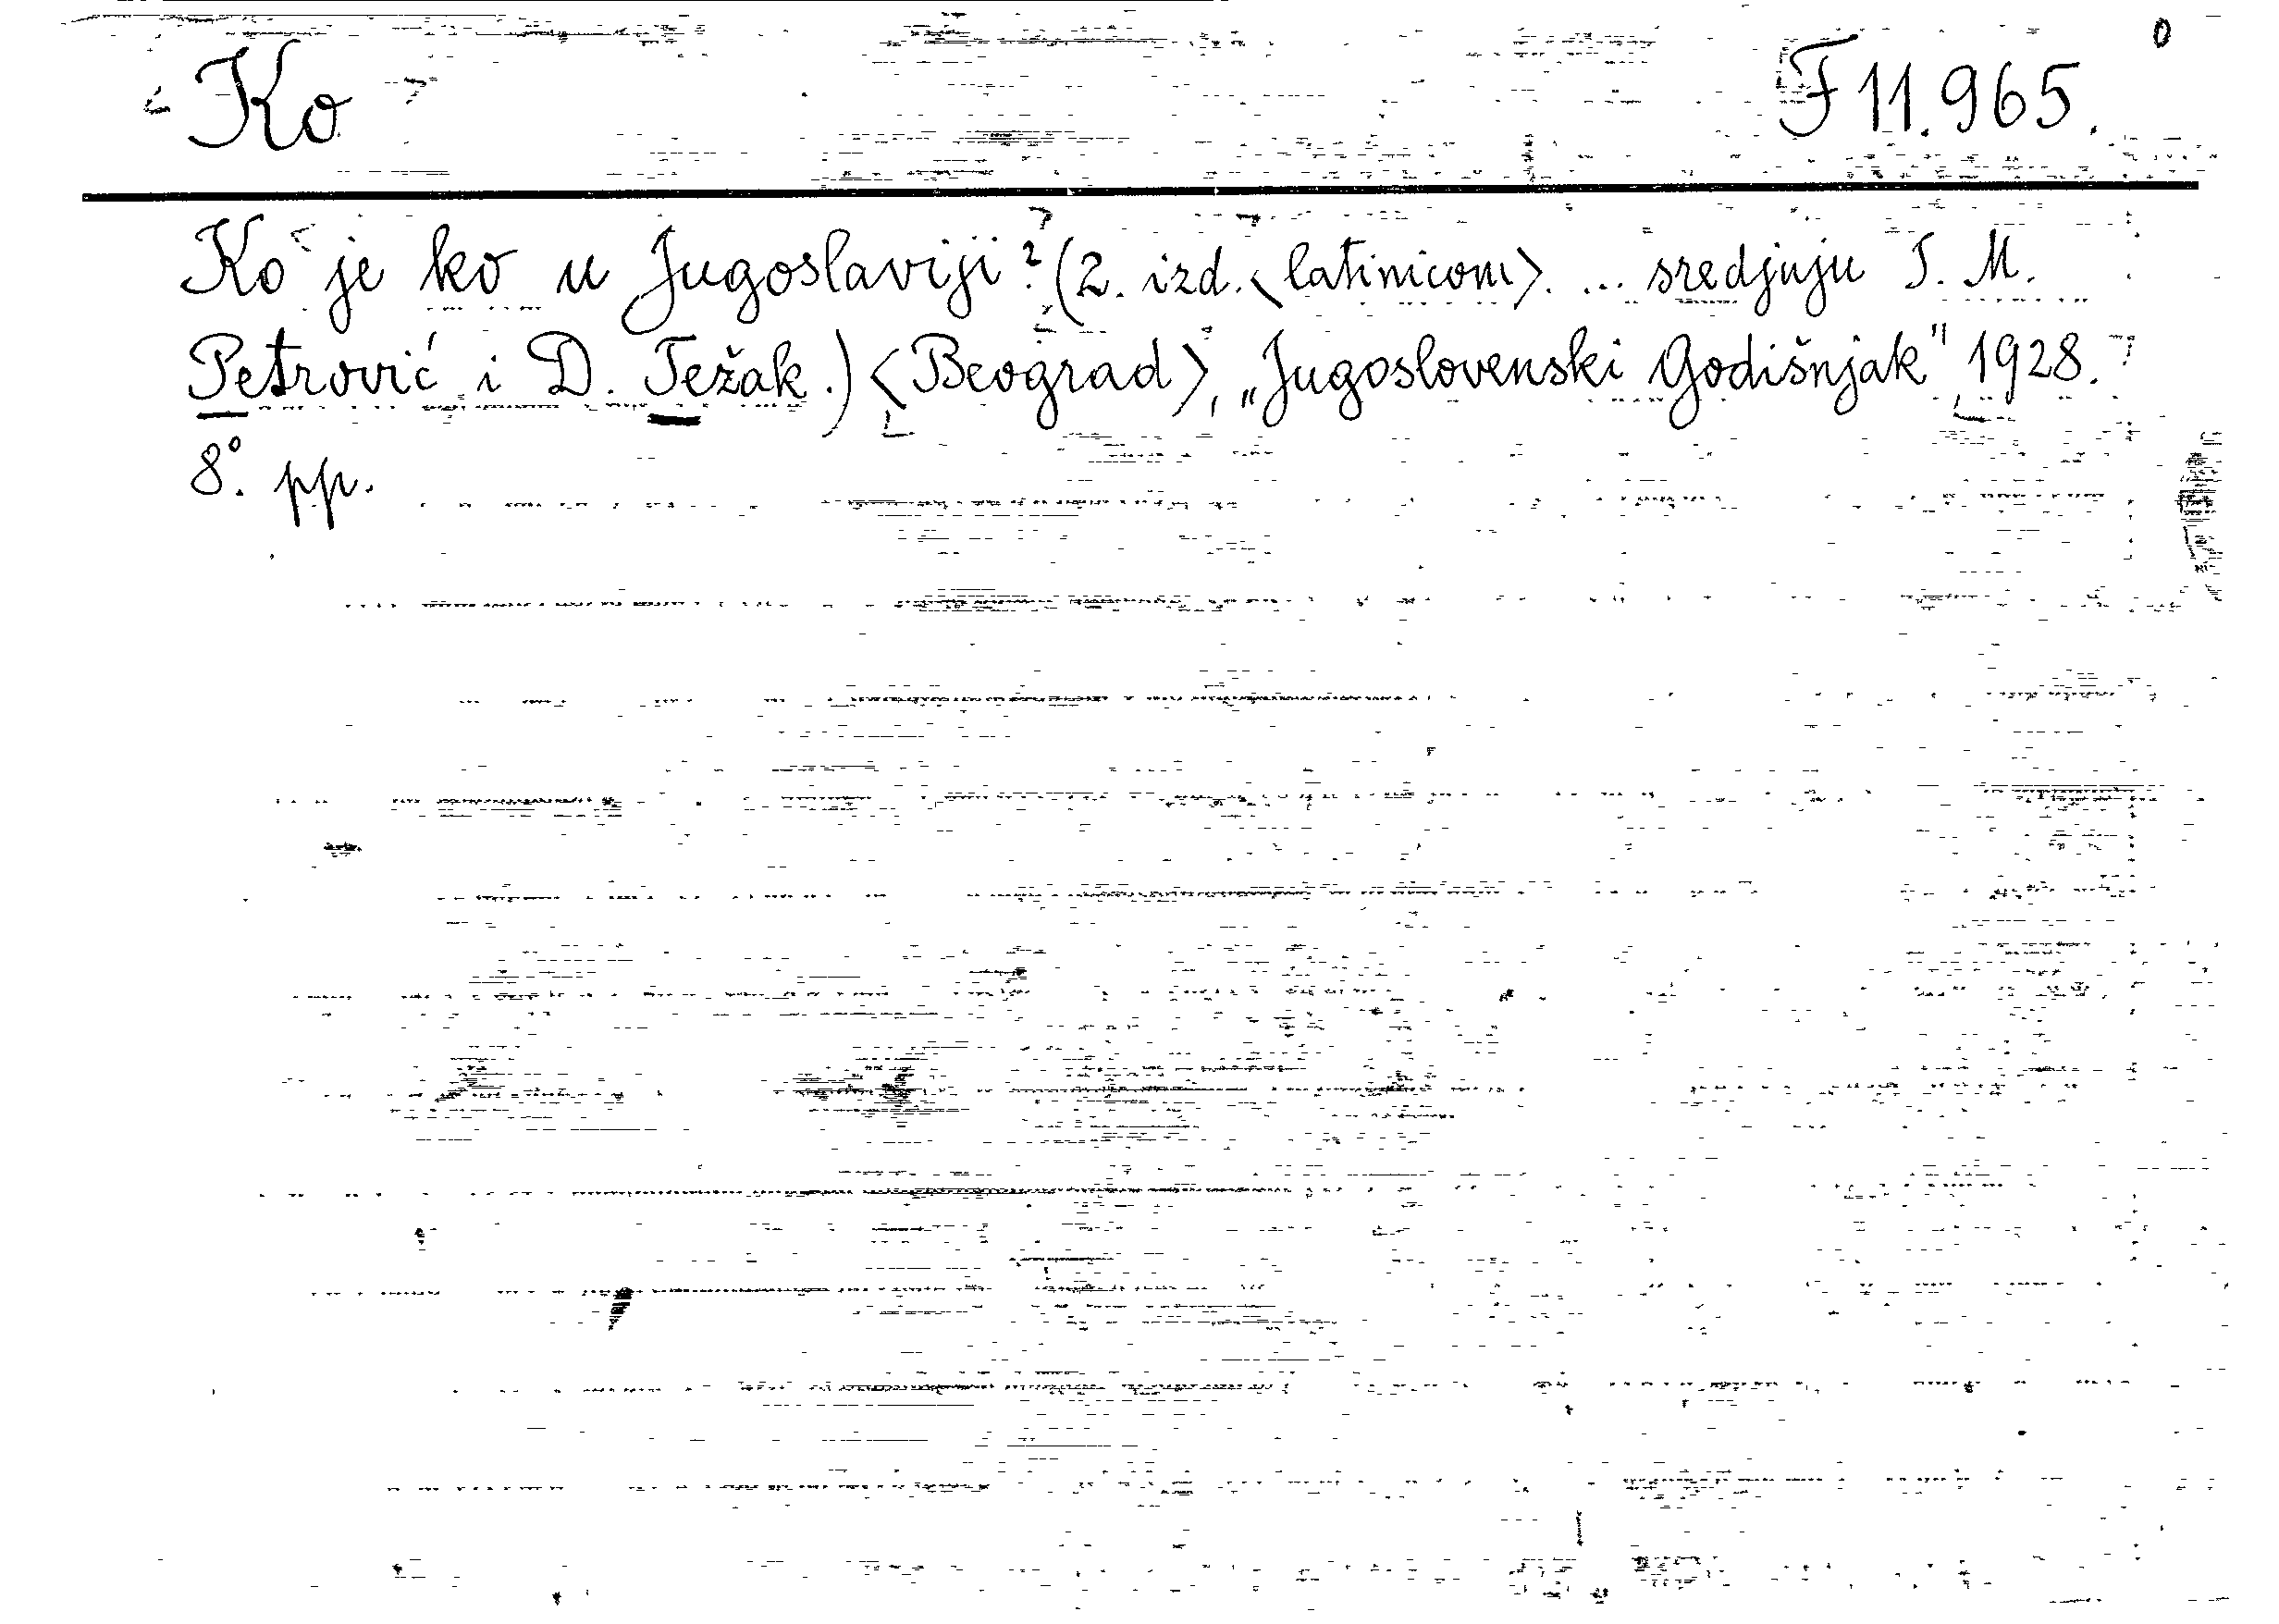 Ko F 11.965.
Ko je ko u Jugoslaviji? (2. izd. <latinicom>. ... sredjuju T. M.
Petrović i D. Težak.) <Beograd>, „Jugoslovenski Godišnjak" 1928.
8°. pp.